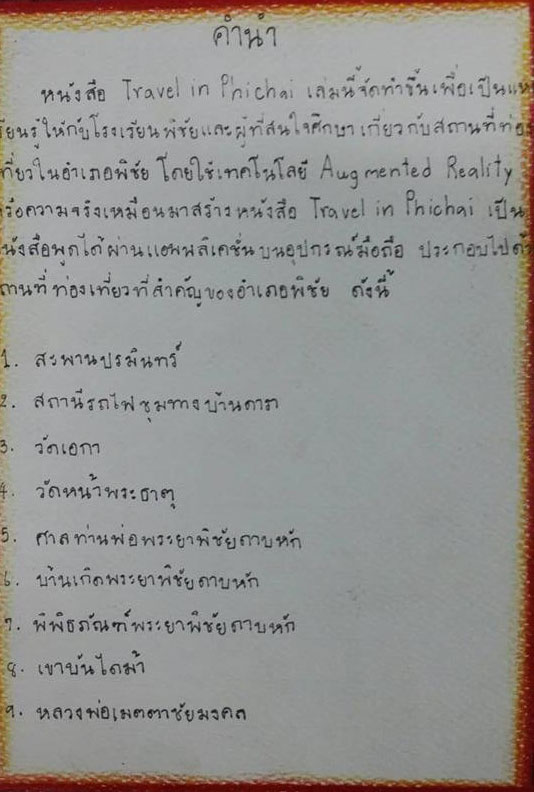 คำนำ
หนังสือ Travel in Phichai เล่มนี้จัดทำขึ้นเพื่อเป็นแห
เรียนรู้ให้กับโรงเรียนพิชัยและผู้ที่สนใจศึกษาเกี่ยวกับสถานที่ท่อง
เที่ยวในอำเภอพิชัย โดยใช้เทคโนโลยี Augmented Reality
หรือความจริงเหมือนมาสร้างหนังสือ Travel in Phichai เป็น
หนังสือพูดได้ผ่านแอพพลิเคชั่นบนอุปกรณ์มือถือ ประกอบไปด้ว
สถานที่ท่องเที่ยวที่สำคัญของอำเภอพิชัย ดังนี้
1. สะพานปรมินทร์
2. สถานีรถไฟชุมทางบ้านดารา
3. วัดเอกา
4. วัดหน้าพระธาตุ
5. ศาลท่านพ่อพระยาพิชัยดาบหัก
6. บ้านเกิดพระยาพิชัยดาบหัก
7. พิพิธภัณฑ์พระยาพิชัยดาบหัก
8. เขาบันไดม้า
9. หลวงพ่อเมตตาชัยมงคล